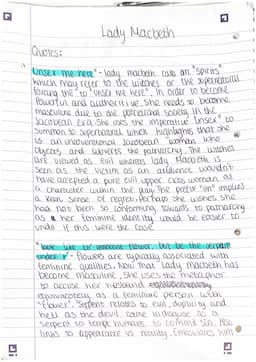 Lady Macbeth
Quotes:
"Unsex me here" - lady macbeth calls on "spirits"
which may refer to the witches or the supernatural
forcing the to "unsex me here". In order to become
powerful and authoritive, she needs to become
masculine due to the patriarchal society in the
Jacobean era. She uses the imperative "unsex" to
summon to supernatural which highlights that she
is an unconventional woman who
objects and subverts the patriarchy. The witches
are viewed as evil whereas lady Macbeth is
seen as the victim as an audience wouldn't
have accepted a pure evil upper class woman as
a character within the play. The prefix "un" implies
a keen sense of regret. Perhaps she wishes she
had not been so conforming towards to patriarchy
as her feminine identity would be easier to
undo if this were the case
"look like th' innocent flower, but be the serpent
under it" - Flowers are typically associated with
feminine qualities. Now that lady Macbeth has
become masculine, she uses the metaphor
to accuse her husband
as a feminine person with
"flower". Serpent relates to evil, duplicity and
hell as the devil came in disguise as a
serpent to tempt humans to commit sin. Also
links to appearance vs reality. Emasculates him